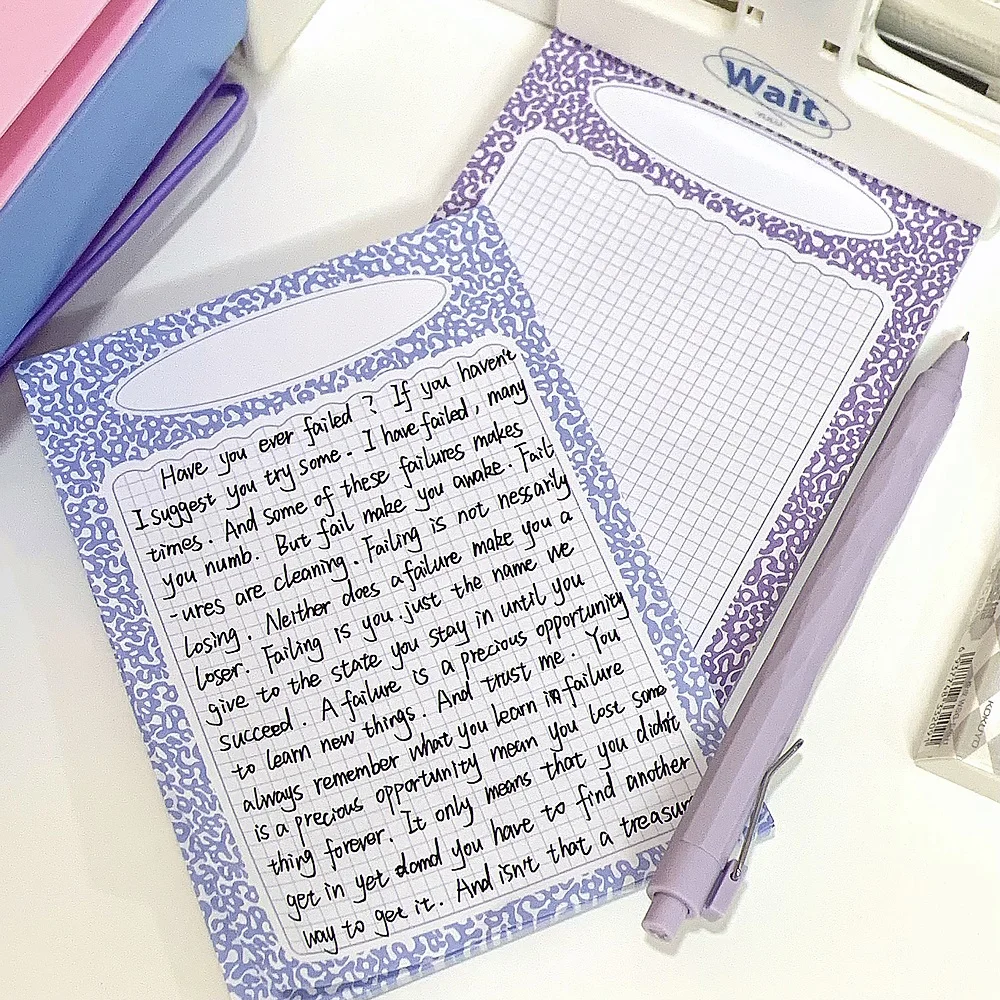 Wait.
Have you ever failed ? If you haven't
I suggest you try some. I have failed, many
times. And some of these failures makes
you numb. But fail make you awake. Fail
-ures are cleaning. Failing is not nessarily
losing. Neither does a failure make you a
loser. Failing is you just the name we
give to the state you stay in until you
succeed. A failure is a precious opportunity
to learn new things. And trust me. You
always remember what you learn in failure
is a precious opportunity mean you lost some
thing forever. It only means that you didn't
get in yet and you have to find another
way to get it. And isn't that a treasur
KOKUYO